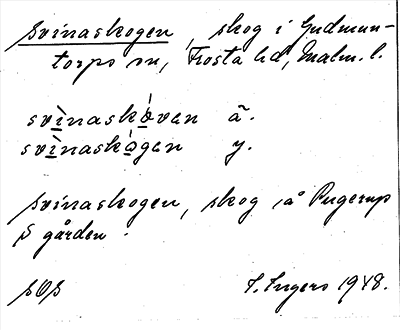 Svinaskogen, skog i Gudmun-
torps sn, Frosta hd, Malm. l.
svìnaskóvan ä.
svìnaskógan y.
Svinaskogen, skog å Pugerup
5 gården.
sOs
I. Ingers 1948.